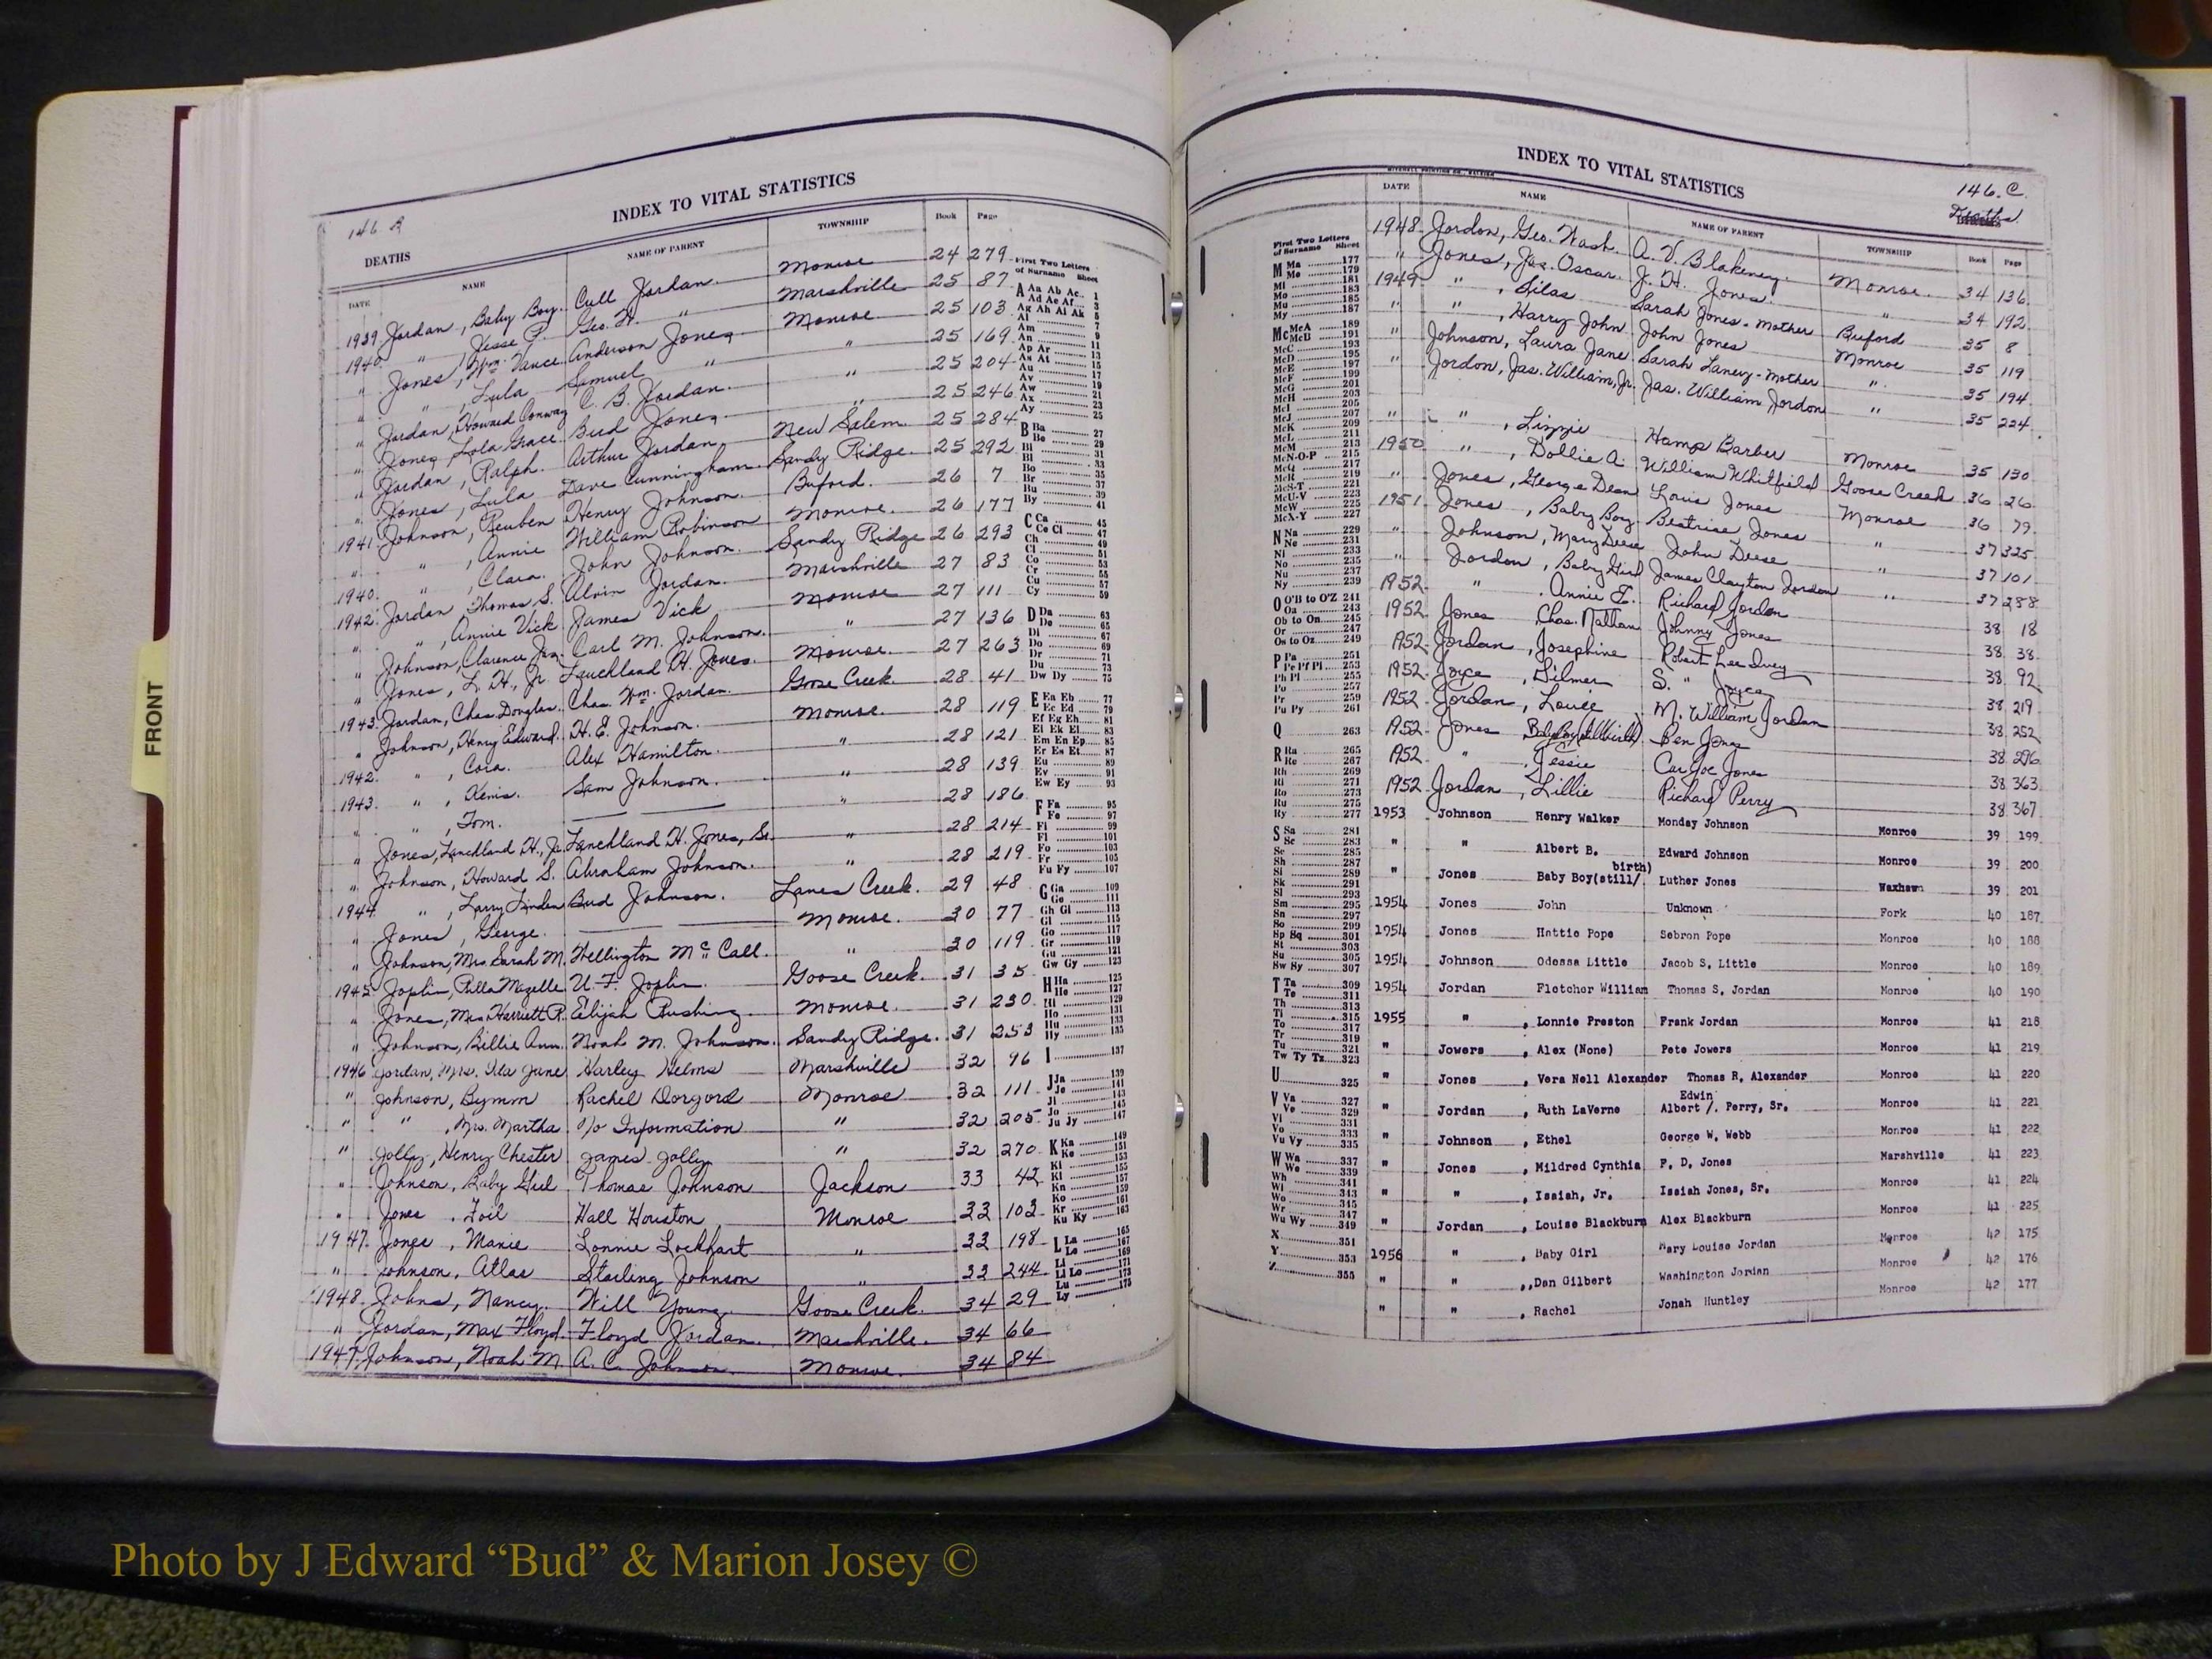 FRONT
146 B
INDEX TO VITAL STATISTICS
DEATHS
DATE NAME NAME OF PARENT TOWNSHIP Book Page
1939 Jordan, Baby Boy. Cull Jordan. Monroe 24 279
1940 " Jesse P. Geo. H. " Marshville 25 87
" Jones, Wm. Vance Anderson Jones Monroe 25 103
" " , Lula Samuel " " 25 169
" Jordan, Howard Conway C. B. Jordan. " 25 204
" Jones Lola Grace Bud Jones " 25 246
" Jordan, Ralph. Arthur Jordan New Salem 25 284
" Jones, Lula Dave Cunningham Sandy Ridge 25 292
1941 Johnson, Reuben Henry Johnson. Buford. 26 7
" " , Annie William Robinson Monroe. 26 177
1940. " , Clara. John Johnson. Sandy Ridge 26 293
1942. Jordan, Thomas S. Alvin Jordan. Marshville 27 83
" " , Annie Vick James Vick Monroe 27 111
" Johnson, Clarence Jas. Carl M. Johnson. " 27 136
" Jones, L. H., Jr. Lauchland H. Jones. Monroe. 27 263
1943. Jordan, Chas Douglas. Chas. Wm. Jordan. Goose Creek. 28 41
" Johnson, Henry Edward. H. E. Johnson. Monroe. 28 119
1942. " , Cora. Alex Hamilton. " 28 121
1943. " , Kenis. Sam Johnson. " 28 139
" " , Tom. " 28 186
" Jones, Lauchland H., Jr. Lauchland H. Jones, Sr. " 28 214
" Johnson, Howard S. Abraham Johnson. " 28 219
1944. " , Larry Linden Bud Johnson. Lanes Creek. 29 48
" Jones, George. Monroe. 30 77
" Johnson, Mrs Sarah M. Wellington McCall. " 30 119
1945. Joplin, Rilla Mozelle U. F. Joplin. Goose Creek. 31 35
" Jones, Mrs Harriett R. Elijah Rushing. Monroe. 31 230
" Johnson, Billie Ann. Noah M. Johnson. Sandy Ridge. 31 253
1946 Jordan, Mrs. Ida Jane Harley Helms Marshville 32 96
" Johnson, Bymm Rachel Dorgord Monroe 32 111
" " , Mrs. Martha No Information " 32 205
" Jolly, Henry Chester James Jolly " 32 270
" Johnson, Baby Girl Thomas Johnson Jackson 33 42
" Jones, Zoil Hall Houston Monroe 33 103
1947. Jones, Manie Lonnie Lockhart " 33 198
" Johnson, Atlas Starling Johnson " 33 244
1948. Johns, Nancy. Will Young. Goose Creek. 34 29
" Jordan, Max Floyd. Floyd Jordan. Marshville. 34 66
1947. Johnson, Noah M. A. C. Johnson. Monroe. 34 84
First Two Letters of Surname Sheet
A Aa Ab Ac 1
Ad Ae Af 3
Ag Ah Ai Ak 5
Al 7
Am 9
An 11
Ap Ar 13
As At 15
Au 17
Av 19
Aw 21
Ax 23
Ay 25
B Ba 27
Be 29
Bi 31
Bl 33
Bo 35
Br 37
Bu 39
By 41
C Ca 45
Ce Ci 47
Ch 49
Cl 51
Co 53
Cr 55
Cu 57
Cy 59
D Da 63
De 65
Di 67
Do 69
Dr 71
Du 73
Dw Dy 75
E Ea Eb 77
Ec Ed 79
Ef Eg Eh 81
Ei Ek El 83
Em En Ep 85
Er Es Et 87
Eu 89
Ev 91
Ew Ey 93
F Fa 95
Fe 97
Fi 99
Fl 101
Fo 103
Fr 105
Fu Fy 107
G Ga 109
Ge 111
Gh Gi 113
Gl 115
Go 117
Gr 119
Gu 121
Gw Gy 123
H Ha 125
He 127
Hi 129
Ho 131
Hu 133
Hy 135
I 137
J Ja 139
Je 141
Ji 143
Jo 145
Ju Jy 147
K Ka 149
Ke 151
Ki 153
Kl 155
Kn 157
Ko 159
Kr 161
Ku Ky 163
L La 165
Le 167
Li 169
Ll Lo 171
Lu 173
Ly 175
INDEX TO VITAL STATISTICS
146.C.
Deaths
DATE NAME NAME OF PARENT TOWNSHIP Book Page
First Two Letters of Surname Sheet
M Ma 177
Me 179
Mi 181
Mo 183
Mu 185
My 187
Mc McA 189
McB 191
McC 193
McD 195
McE 197
McF 199
McG 201
McH 203
McI 205
McJ 207
McK 209
McL 211
McM 213
McN-O-P 215
McQ 217
McR 219
McS-T 221
McU-V 223
McW 225
McX-Y 227
N Na 229
Ne 231
Ni 233
No 235
Nu 237
Ny 239
O O'B to O'Z 241
Oa 243
Ob to On 245
Or 247
Os to Oz 249
P Pa 251
Pe Pf Pl 253
Ph Pi 255
Po 257
Pr 259
Pu Py 261
Q 263
R Ra 265
Re 267
Rh 269
Ri 271
Ro 273
Ru 275
Ry 277
S Sa 281
Sc 283
Se 285
Sh 287
Si 289
Sk 291
Sl 293
Sm 295
Sn 297
So 299
Sp Sq 301
St 303
Su 305
Sw Sy 307
T Ta 309
Te 311
Th 313
Ti 315
To 317
Tr 319
Tu 321
Tw Ty Tz 323
U 325
V Va 327
Ve 329
Vi 331
Vo 333
Vu Vy 335
W Wa 337
We 339
Wh 341
Wi 343
Wo 345
Wr 347
Wu Wy 349
X 351
Y 353
Z 355
1948 Jordon, Geo. Wash. A. V. Blakeney. Monroe. 34 136
" Jones, Jas. Oscar. J. H. Jones. " 34 192
1949 " , Silas Sarah Jones - Mother Buford 35 8
" " , Harry John John Jones Monroe 35 119
" Johnson, Laura Jane Sarah Laney - Mother " 35 194
" Jordon, Jas. William, Jr. Jas. William Jordon " 35 224
" " , Lizzie Hamp Barber Monroe 35 130
1950 " , Dollie A. William Whitfield Goose Creek 36 26
" Jones, George Dean Louis Jones Monroe 36 79
1951 Jones, Baby Boy Beatrise Jones " 37 325
" Johnson, Mary Deese John Deese " 37 101
" Jordon, Baby Girl James Clayton Jordon " 37 288
1952 " , Annie E. Richard Jordon 38 18
1952 Jones, Chas. Nathan Johnny Jones 38 38
1952 Jordan, Josephine Robert Lee Ivey 38 92
1952 Joyce, Dilmer S. " Joyce 38 219
1952 Jordan, Louie M. William Jordan 38 252
1952 Jones Baby Boy (stillbirth) Ben Jones 38 296
1952 " , Jessie Car Joe Jones 38 363
1952 Jordan, Lillie Richard Perry 38 367
1953 Johnson Henry Walker Monday Johnson Monroe 39 199
" " Albert B. Edward Johnson Monroe 39 200
" Jones Baby Boy(still/birth) Luther Jones Waxhawn 39 201
1954 Jones John Unknown Fork 40 187
1954 Jones Hattie Pope Sebron Pope Monroe 40 188
1954 Johnson Odessa Little Jacob S. Little Monroe 40 189
1954 Jordan Fletcher William Thomas S. Jordan Monroe 40 190
1955 " , Lonnie Preston Frank Jordan Monroe 41 218
" Jowers , Alex (None) Pete Jowers Monroe 41 219
" Jones , Vera Nell Alexander Thomas R. Alexander Monroe 41 220
" Jordan , Ruth LaVerne Albert /. Edwin Perry, Sr. Monroe 41 221
" Johnson , Ethel George W. Webb Monroe 41 222
" Jones , Mildred Cynthia F. D. Jones Marshville 41 223
" " , Isaiah, Jr. Isaiah Jones, Sr. Monroe 41 224
" Jordan , Louise Blackburn Alex Blackburn Monroe 41 225
1956 " , Baby Girl Mary Louise Jordan Monroe 42 175
" " ,,Dan Gilbert Washington Jordan Monroe 42 176
" " , Rachel Jonah Huntley Monroe 42 177
Photo by J Edward “Bud” & Marion Josey ©